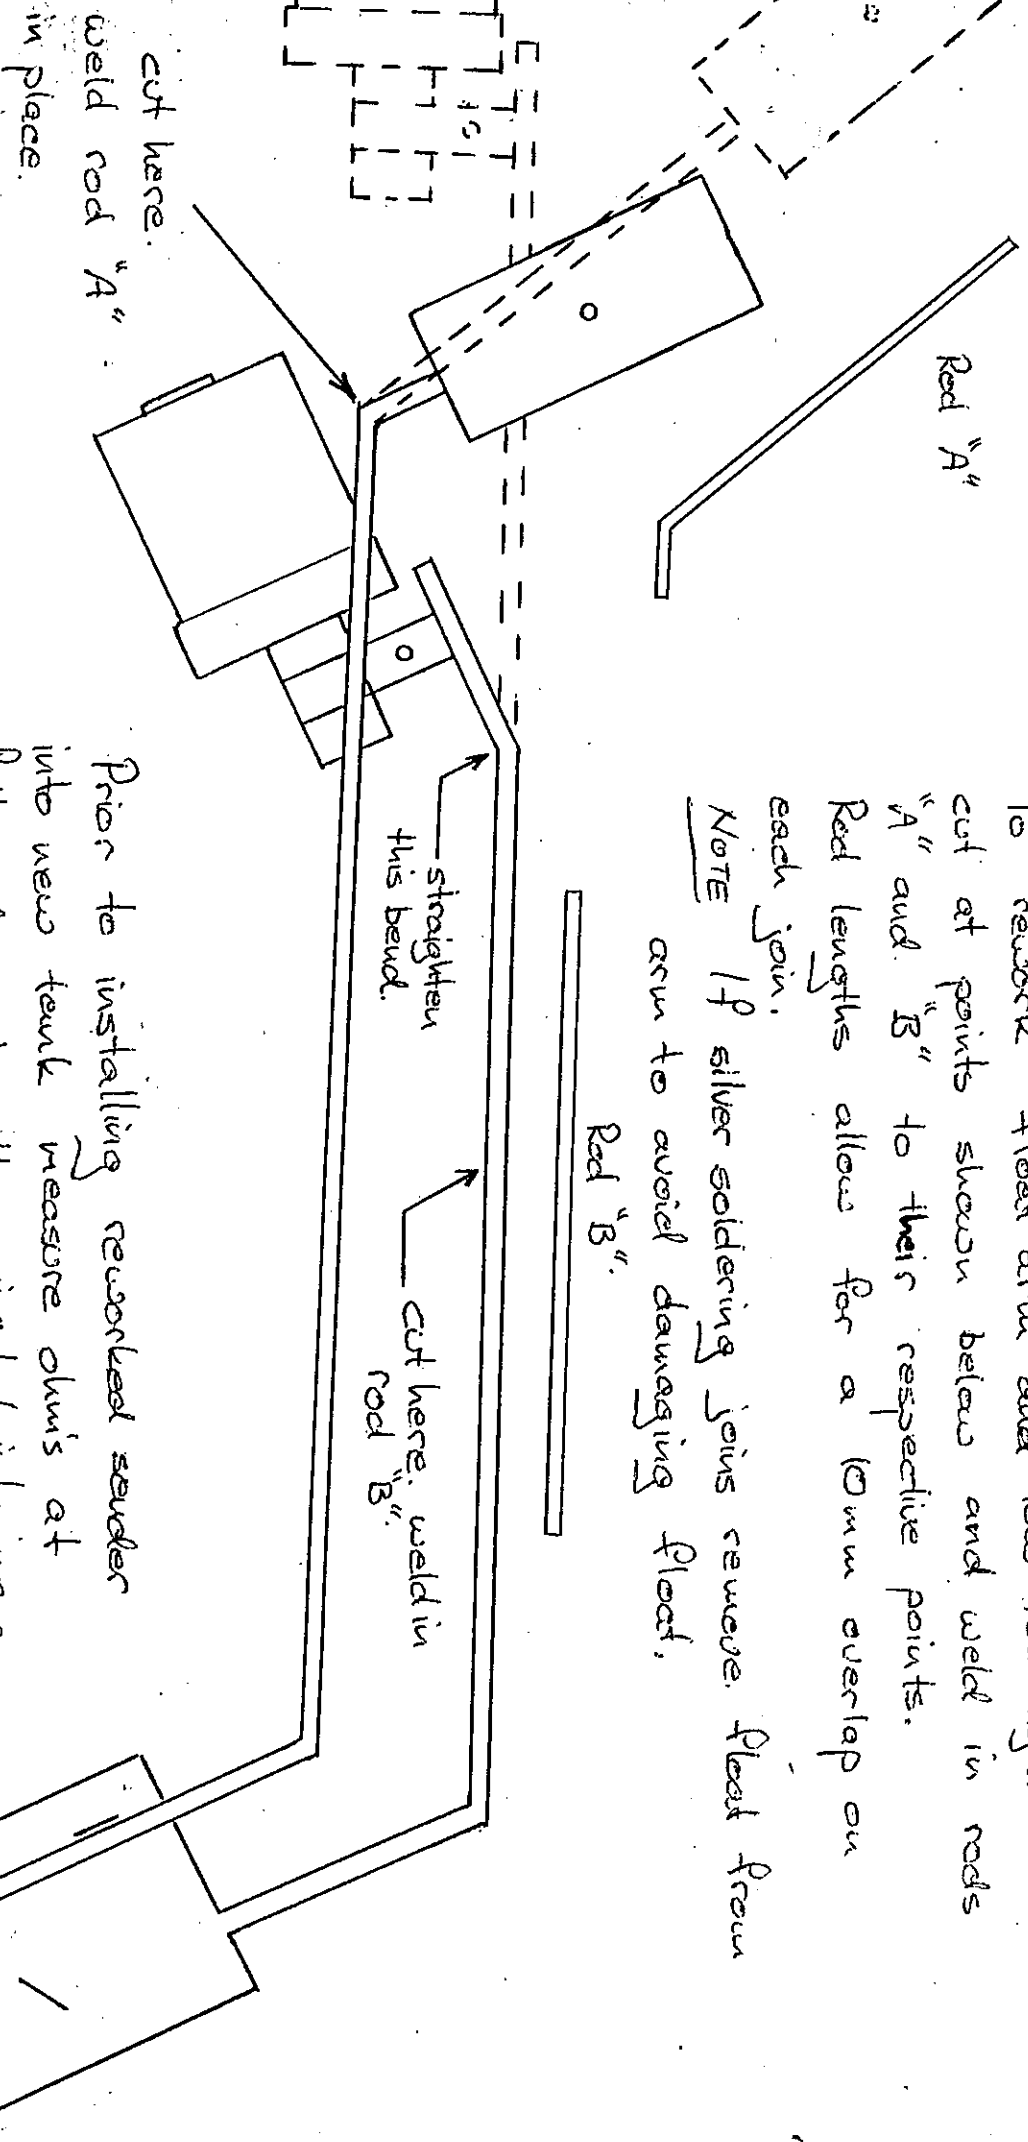 Rod "A"
To rework float arm and low
cut at points shown below and weld in rods
"A" and "B" to their respective points.
Rod lengths allow for a 10mm overlap on
each join.
NOTE If silver soldering joins remove float from
arm to avoid damaging float.
Rod "B".
cut here.
weld rod "A"
in place.
straighten
this bend.
cut here. weld in
rod "B".
Prior to installing reworked sender
into new tank measure ohm's at